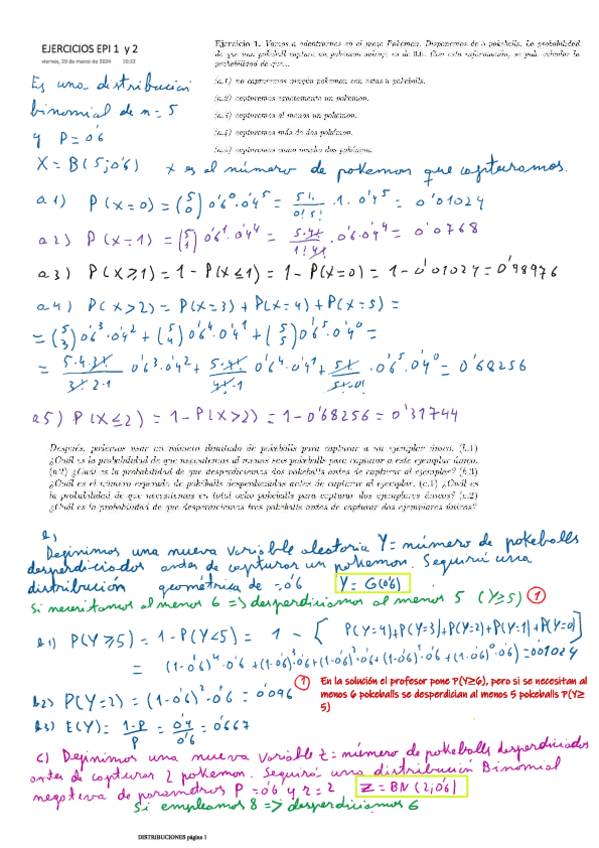 EJERCICIOS EPI 1 y 2
viernes, 29 de marzo de 2024 10:22
Ejercicio 1. Vamos a adentrarnos en el juego Pokémon. Disponemos de 5 pokeballs. La probabilidad
de que una pokeball capture un pokemon salvaje es de 0.6. Con esta información, se pide calcular la
probabilidad de que...
(a.1) no capturemos ningún pokemon con estas 5 pokeballs.
(a.2) capturemos exactamente un pokemon.
(a.3) capturemos al menos un pokemon.
(a.4) capturemos más de dos pokemon.
(a.5) capturemos como mucho dos pokemon.
Es una distribución
binomial de n=5
y P=0'6
X=B(5;0'6) x es el número de pokemos que capturamos.
a.1) P(X=0) = (5 0) 0'6^0 · 0'4^5 = 5!/0!5! · 1 · 0'4^5 = 0'01024
a.2) P(X=1) = (5 1) 0'6^1 · 0'4^4 = 5·4!/1!4! · 0'6·0'4^4 = 0'0768
a.3) P(X≥1) = 1 - P(X≤1) = 1 - P(X=0) = 1 - 0'01024 = 0'98976
a.4) P(X>2) = P(X=3) + P(X=4) + P(X=5) =
= (5 3) 0'6^3 · 0'4^2 + (5 4) 0'6^4 · 0'4^1 + (5 5) 0'6^5 · 0'4^0 =
= 5·4·3!/3!·2·1 0'6^3 · 0'4^2 + 5·4!/4!·1 0'6^4 · 0'4^1 + 5!/5!·0! · 0'6^5 · 0'4^0 = 0'68256
a.5) P(X≤2) = 1 - P(X>2) = 1 - 0'68256 = 0'31744
Después, podemos usar un número ilimitado de pokeballs para capturar a un ejemplar único. (b.1)
¿Cuál es la probabilidad de que necesitemos al menos seis pokeballs para capturar a este ejemplar único.
(b.2) ¿Cuál es la probabilidad de que desperdiciemos dos pokeballs antes de capturar al ejemplar? (b.3)
¿Cuál es el número esperado de pokeballs desperdiciadas antes de capturar al ejemplar. (c.1) ¿Cuál es
la probabilidad de que necesitemos en total ocho pokeballs para capturar dos ejemplares únicos? (c.2)
¿Cuál es la probabilidad de que desperdiciemos tres pokeballs antes de capturar dos ejemplares únicos?
b)
Definimos una nueva variable aleatoria Y = número de pokeballs
desperdiciados antes de capturar un pokemon. Seguirá una
distribución geométrica de 0'6 Y = G(0'6)
Si necesitamos al menos 6 => desperdiciamos al menos 5 (Y≥5) 1
b1) P(Y≥5) = 1 - P(Y<5) = 1 - [P(Y=4)+P(Y=3)+P(Y=2)+P(Y=1)+P(Y=0)]
= (1-0'6)^4 · 0'6 + (1-0'6)^3 · 0'6 + (1-0'6)^2 · 0'6 + (1-0'6) · 0'6 + 0'6 = 0'01024
b2) P(Y=2) = (1-0'6)^2 · 0'6 = 0'096
1 En la solución el profesor pone P(Y≥6), pero si se necesitan al
menos 6 pokeballs se desperdician al menos 5 pokeballs P(Y≥
5)
b3) E(Y) = 1-P/P = 0'4/0'6 = 0'667
c) Definimos una nueva variable Z = número de pokeballs desperdiciados
antes de capturar 2 pokemon. Seguirá una distribución Binomial
negativa de parametros P=0'6 y r=2 Z = BN(2;0'6)
Si empleamos 8 => desperdiciamos 6
DISTRIBUCIONES página 1